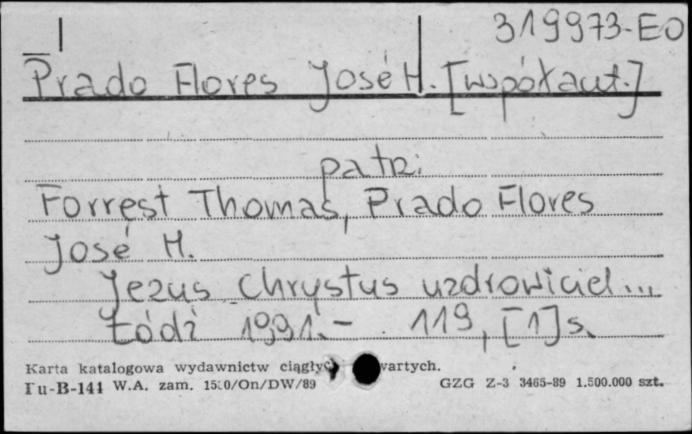 319973-EO
Prado Flores José H. [współaut.]
patrz:
Forrest Thomas, Prado Flores
José H.
Jezus Chrystus uzdrowiciel...
Łódź 1991.- 119, [1]s.
Karta katalogowa wydawnictw
Pu-B-141 W.A. zam. 1510/On/DW/89 GZG Z-3 3465-89 1.500.000 szt.